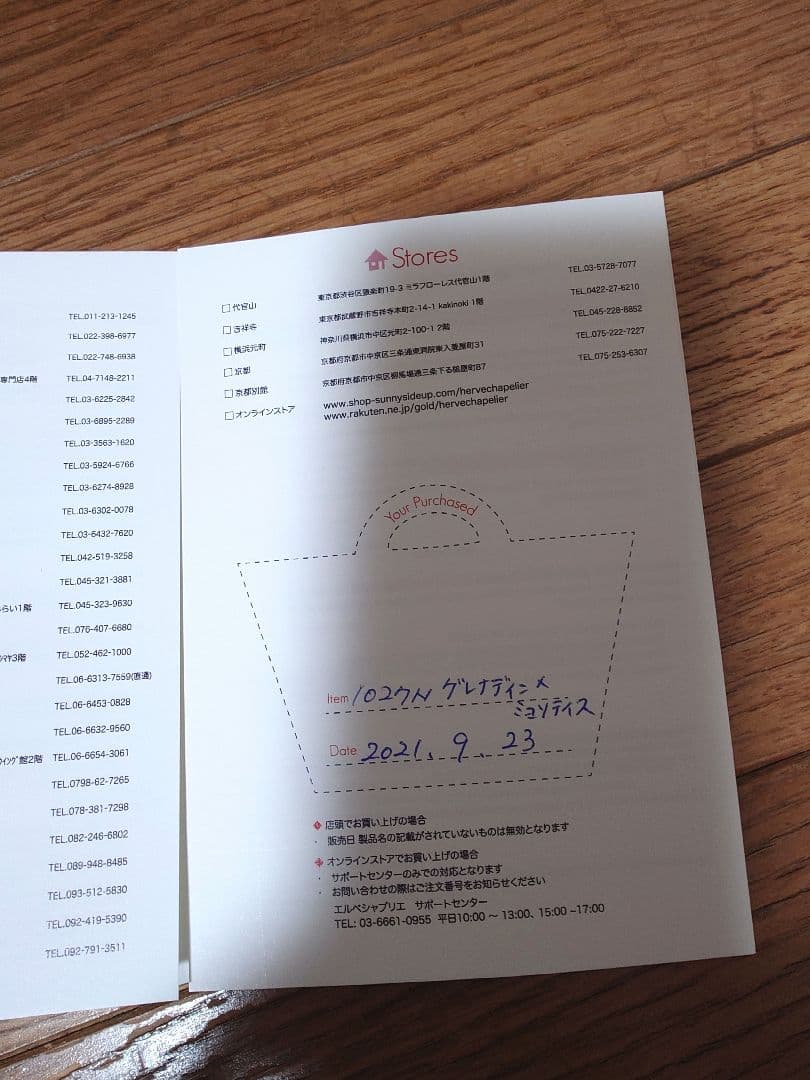 TEL.011-213-1245
TEL.022-398-6977
TEL.022-748-6938
専門店4階 TEL.04-7148-2211
TEL.03-6225-2842
TEL.03-6895-2289
TEL.03-3563-1620
TEL.03-5924-6766
TEL.03-6274-8928
TEL.03-6302-0078
TEL.03-6432-7620
TEL.042-519-3258
TEL.045-321-3881
らい1階 TEL.045-323-9630
TEL.076-407-6680
マヤ3階 TEL.052-462-1000
TEL.06-6313-7559(直通)
TEL.06-6453-0828
TEL.06-6632-9560
ウイング館2階 TEL.06-6654-3061
TEL.0798-62-7265
TEL.078-381-7298
TEL.082-246-6802
TEL.089-948-8485
TEL.093-512-5830
TEL.092-419-5390
TEL.092-791-3511
Stores
代官山 東京都渋谷区猿楽町19-3 ミラフローレス代官山1階 TEL.03-5728-7077
吉祥寺 東京都武蔵野市吉祥寺本町2-14-1 kakinoki 1階 TEL.0422-27-6210
横浜元町 神奈川県横浜市中区元町2-100-1 2階 TEL.045-228-8852
京都 京都府京都市中京区三条通東洞院東入菱屋町31 TEL.075-222-7227
京都別館 京都府京都市中京区柳馬場通三条下る槌屋町87 TEL.075-253-6307
オンラインストア www.shop-sunnysideup.com/hervechapelier
www.rakuten.ne.jp/gold/hervechapelier
Your Purchased
Item 1027N グレナディン×
ミヨソティス
Date 2021. 9. 23
店頭でお買い上げの場合
・ 販売日 製品名の記載がされていないものは無効となります
オンラインストアでお買い上げの場合
・ サポートセンターのみでの対応となります
・ お問い合わせの際はご注文番号をお知らせください
エルベシャプリエ サポートセンター
TEL: 03-6661-0955 平日10:00 ~ 13:00、15:00 ~17:00